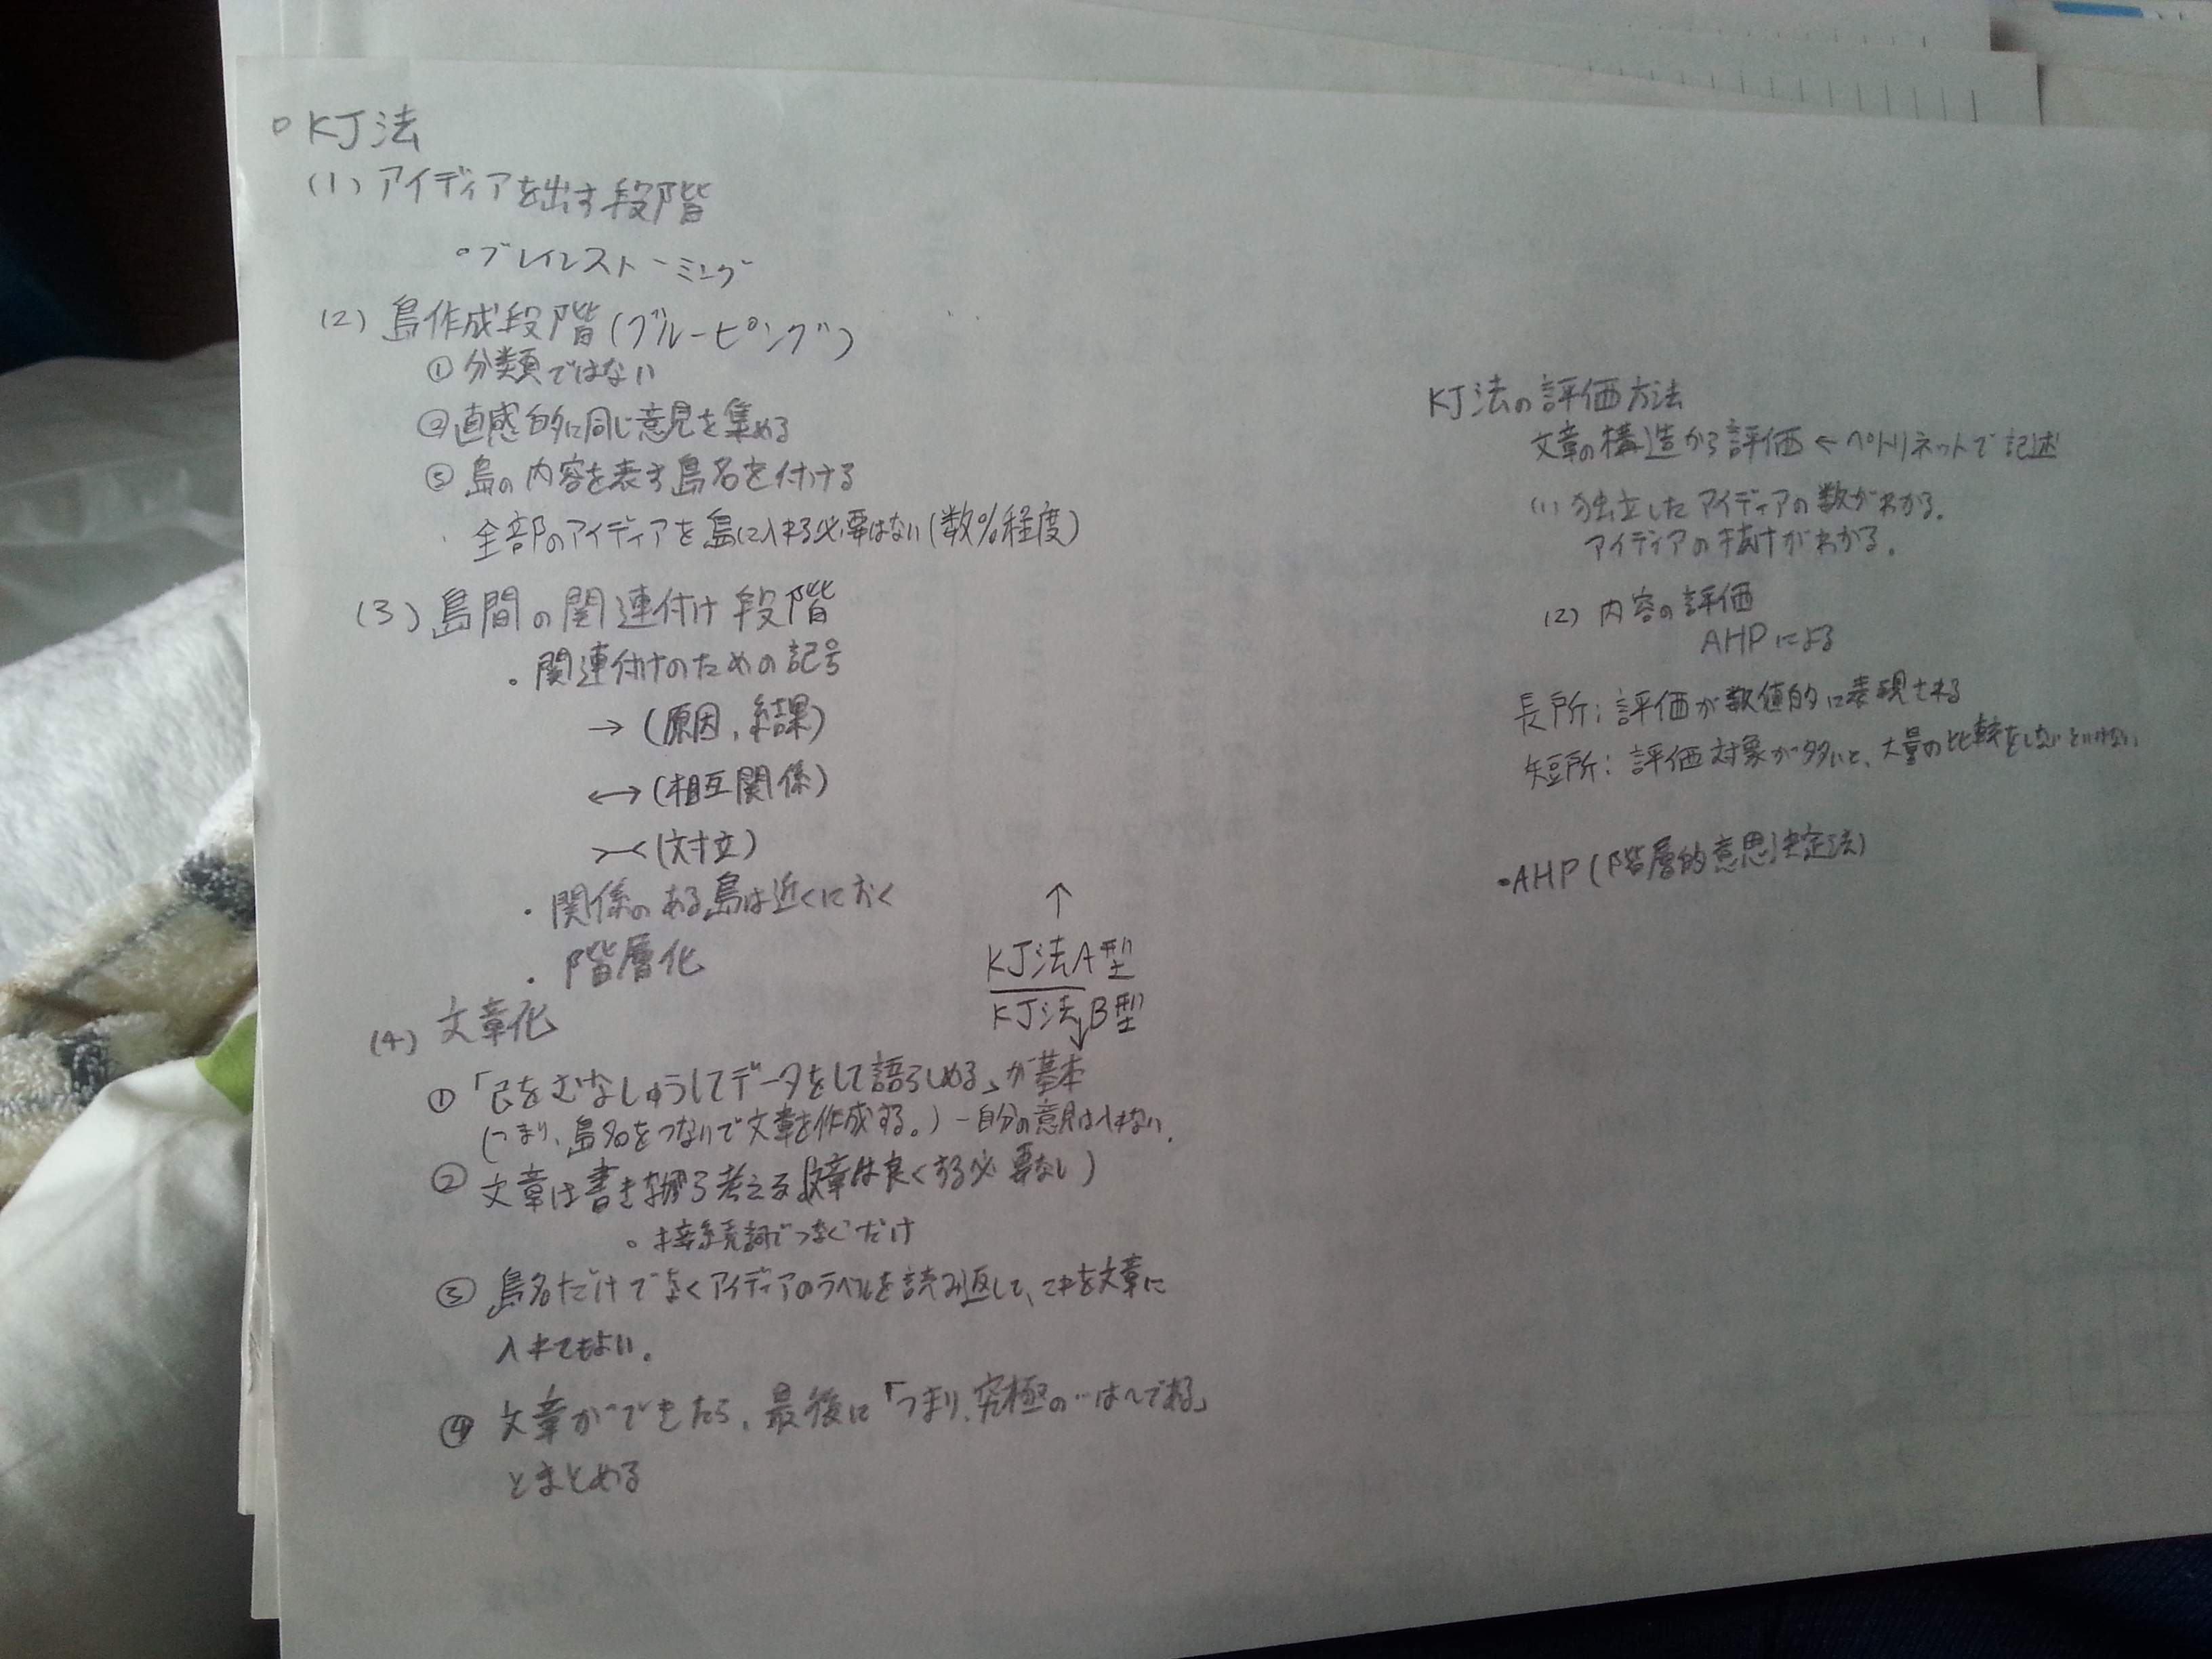 ○KJ法
(1) アイディアを出す段階
○ブレインストーミング
(2) 島作成段階(グルーピング)
① 分類ではない
② 直感的に同じ意見を集める
③ 島の内容を表す島名を付ける
・全部のアイディアを島に入れる必要はない(数%程度)
(3) 島間の関連付け段階
・関連付けのための記号
→ (原因,結果)
↔ (相互関係)
>─< (対立)
・関係のある島は近くにおく
・階層化
↑
KJ法A型
KJ法B型
↓
(4) 文章化
① 「己をむなしゅうしてデータをして語らしめる」が基本
(つまり、島名をつないで文章を作成する。) ― 自分の意見は入れない.
② 文章は書きながら考える(文章は良くする必要なし)
○接続詞でつなぐだけ
③ 島名だけでなくアイディアのラベルを読み返して、これを文章に
入れてもよい.
④ 文章ができたら、最後に「つまり、究極の…は〜である」
とまとめる
KJ法の評価方法
文章の構造から評価 ← ペトリネットで記述
(1) 独立したアイディアの数がわかる.
アイディアの抜けがわかる.
(2) 内容の評価
AHPによる
長所: 評価が数値的に表現される
短所: 評価対象が多いと、大量の比較をしないといけない
・AHP (階層的意思決定法)